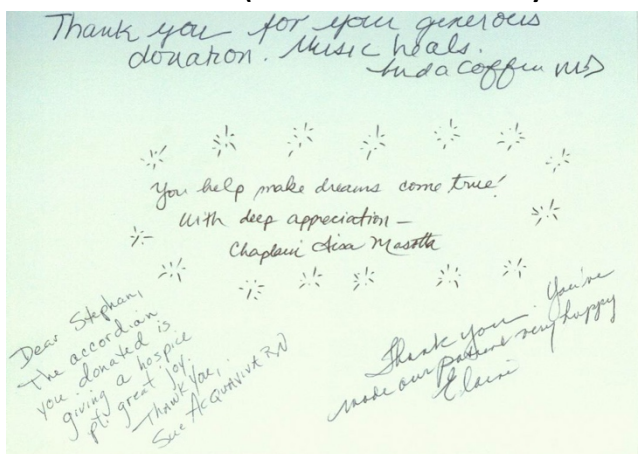 Thank you for your generous
donation. Music heals.
Linda Coffin MD
You help make dreams come true!
With deep appreciation —
Chaplain Lisa Masotta
Dear Stephan,
The accordian
you donated is
giving a hospice
pt. great joy.
Thank You,
Sue Acquaviva RN
Thank you. You've
made our patient very happy
Elaine